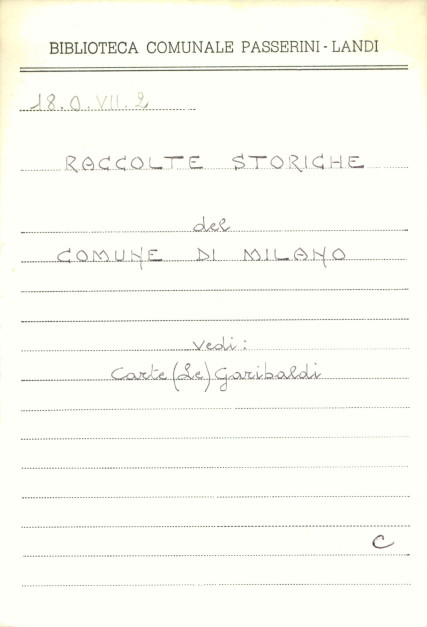 BIBLIOTECA COMUNALE PASSERINI-LANDI
18.O.VII.2
RACCOLTE STORICHE
del
COMUNE DI MILANO
vedi:
Carte (Le) Garibaldi
C